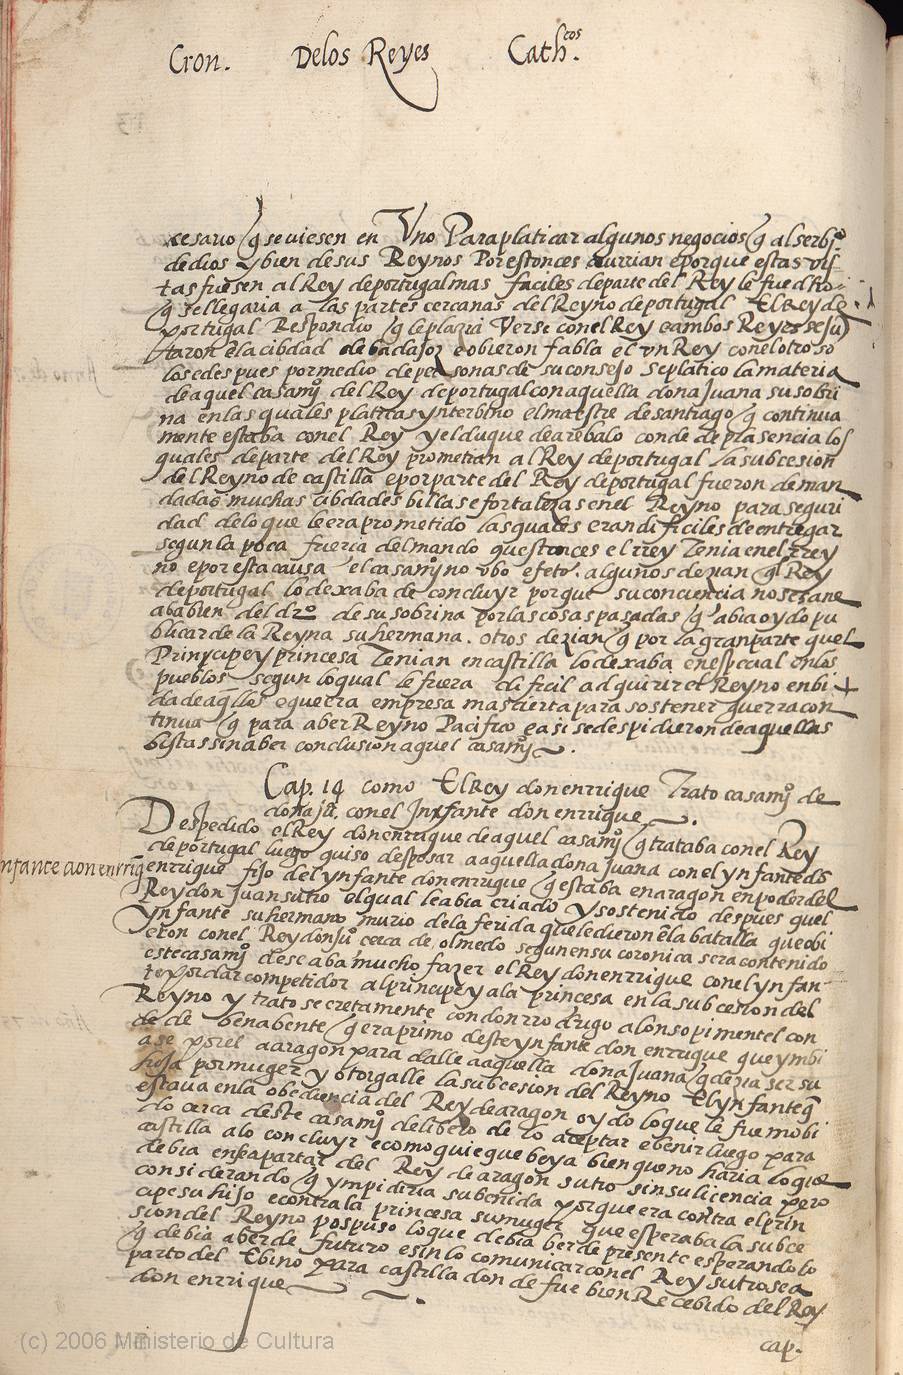 Cron. Delos Reyes Cath.cos
cesario q se viesen en Vno Para platicar algunos negocios q al serbi.o
de dios y bien de sus Reynos Por estonces ocurrian e porque estas vis-
tas fuesen al Rey de portugal mas faciles de parte del Rey le fue dho
q se llegaria a las partes cercanas del Reyno de portugal El Rey de
portugal Respondio q le plazia Verse con el Rey e ambos Reyes se Ju
taron ẽ la cibdad de badajoz e obieron fabla el vn Rey con el otro so
los e despues por medio de personas de su consejo se platico la materia
de aquel casamj.o del Rey de portugal con aquella dona Juana su sobri
na en las quales platicas ynterbino el maestre de santiago q continua
mente estaba con el Rey y el duque de arebalo conde de plasencia los
quales de parte del Rey prometian al Rey de portugal la subcesion
del Reyno de castilla e por parte del Rey de portugal fueron deman
dadas muchas cibdades billas e fortalezas en el Reyno para seguri
dad de lo que le era prometido las quales eran dificiles de entregar
segun la poca fuerza del mando que estonces el rrey Tenia en el rrey
no e por esta causa el casamj.o no vbo efeto. algunos dezian q el Rey
de portugal lo dexaba de concluyr porque su conciencia no se sane
aba bien del dr.o de su sobrina por las cosas pasadas q abia oydo pu
blicar de la Reyna su hermana. otros dezian q por la gran parte quel
Prinçipe y princesa Tenian en castilla lo dexaba en especial en los
pueblos segun lo qual le fuera dificil adquirir el Reyno en bi
da de aq̃llos e querra empresa mas cierta para sostener guerra con
tinua q para aber Reyno Pacifico e asi se despidieron de aquellas
bistas sin aber conclusion aquel casamj.o
Cap. 14 como El Rey don enrrique Trato casamj.o de
dona ju.a con el Jnfante don enrrique.
Despedido el Rey don enrrique de aquel casamj.o q trataba con el Rey
de portugal luego quiso desposar a aquella dona Juana con el ynfante dõ
nfante don enrriq
enrrique fijo del ynfante don enrrique q estaba en aragon en poder del
Rey don Juan su tio el qual le abia criado y sostenido despues quel
ynfante su hermano murio de la ferida que le dieron ẽ la batalla que obi
eron con el Rey don ju.o cerca de olmedo segun en su coronica sera contenido
este casamj.o deseaba mucho fazer el Rey don enrrique con el ynfan-
te por dar competidor al principe y a la princesa en la subcesion del
Reyno y trato secretamente con don rrodrigo alonso pimentel con
de de benabente q era primo deste ynfante don enrrique que ymbi
ase por el a aragon para dalle a aquella dona Juana q dezia ser su
hija por muger y otorgalle la subcesion del Reyno El ynfante q̃
estaua en la obediencia del Rey de aragon oydo lo que le fue mobi
do cerca deste casamj.o delibero de lo aceptar e benir luego para
castilla a lo concluyr e como quiera que beya bien que no haria lo que
debia en se apartar del Rey de aragon su tio sin su licencia pero
considerando q ympidiria su benida porque era contra el prin
cipe su hijo e contra la princesa su muger que esperaba la subce
sion del Reyno pospuso lo que debia ber de presente esperando lo
q debia aber de futuro e sin lo comunicar con el Rey su tio sea
parto del E bino para castilla don de fue bien Recebido del Rey
don enrrique
cap.
(c) 2006 Ministerio de Cultura